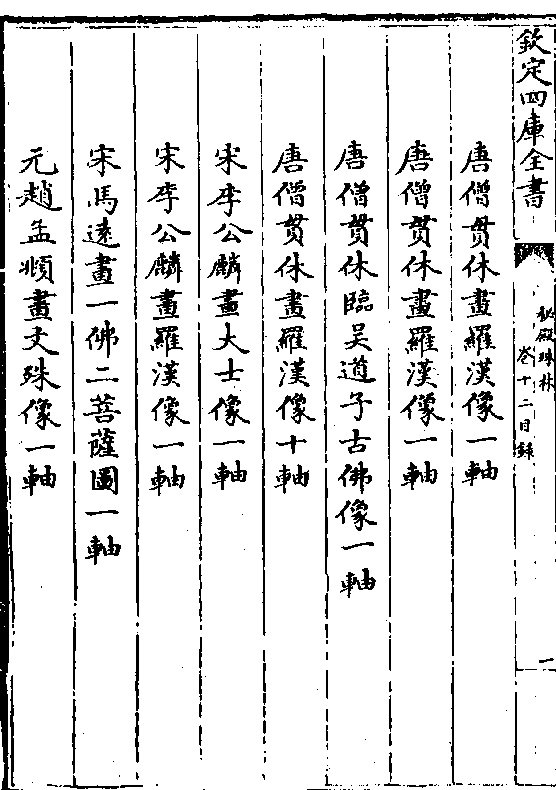 欽定四庫全書
祕殿珠林
卷十二目録
一
唐僧貫休畫羅漢像一軸
唐僧貫休畫羅漢像一軸
唐僧貫休臨吳道子古佛像一軸
唐僧貫休畫羅漢像十軸
宋李公麟畫大士像一軸
宋李公麟畫羅漢像一軸
宋馬遠畫一佛二菩薩圖一軸
元趙孟頫畫文殊像一軸